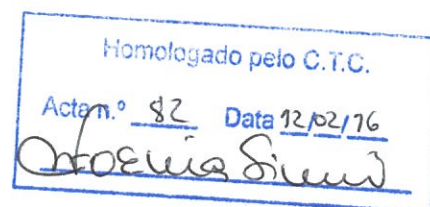 Homologado pelo C.T.C.
Acta n.º 82 Data 12/02/16